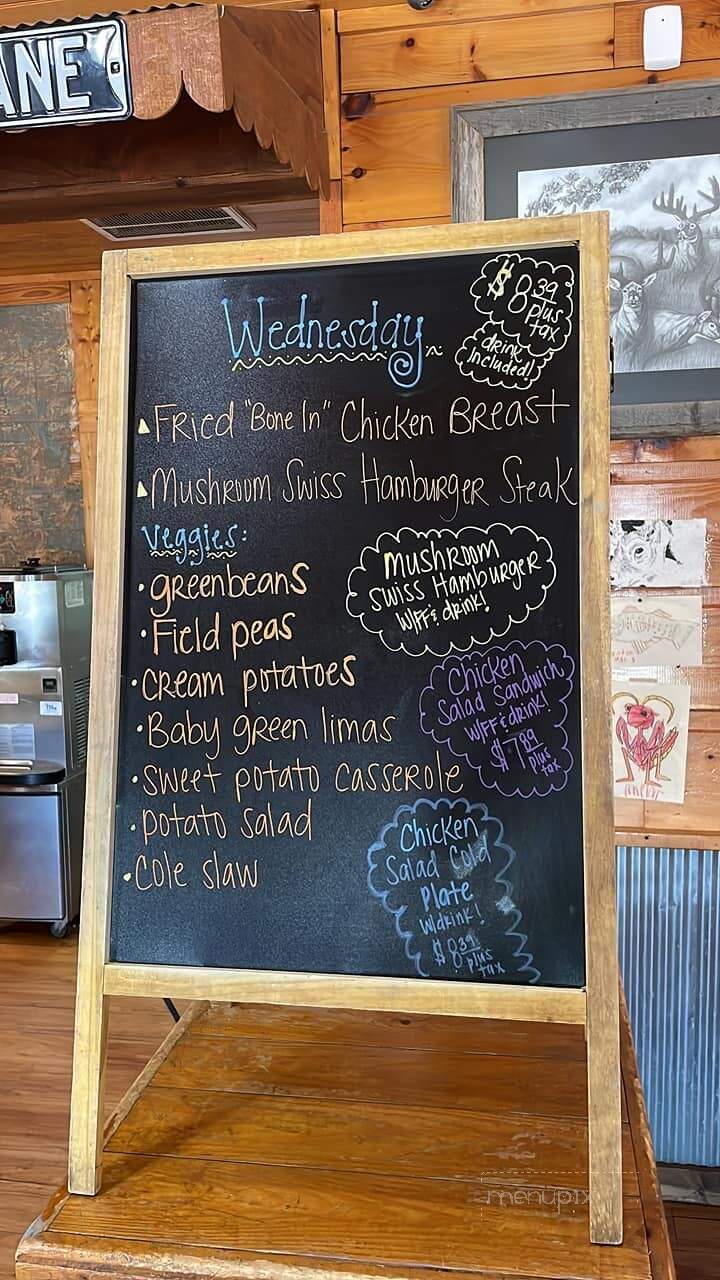 ANE
Wednesday
$8.39
plus
tax
drink
included!
Fried "Bone In" Chicken Breast
Mushroom Swiss Hamburger Steak
Veggies:
greenbeans
Field peas
cream potatoes
Baby green limas
sweet potato casserole
potato salad
cole slaw
mushroom
swiss Hamburger
W/FF & drink!
Chicken
Salad Sandwich
W/FF & drink!
$7.89
plus
tax
Chicken
Salad Cold
Plate
w/drink!
$8.39
plus
tax
menupix